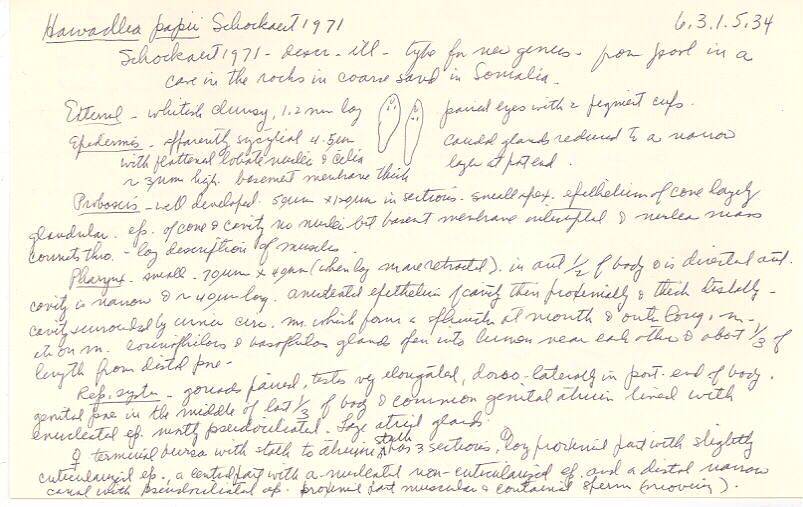 Hawadlea papii Schockaert 1971 6.3.1.5.34
Schockaert 1971 - descr - ill - type for new genus - from pool in a
cave in the rocks in coarse sand in Somalia.
External - whitish clumsy, 1.2 mm long paired eyes with 2 pigment cups.
Epidermis - apparently sycytial 4.5µm caudal glands reduced to a narrow
with flattened lobate nuclei & cilia layer at post end.
~ 3µm high. basement membrane thick
Proboscis - well developed. 50µm x 120µm in sections. small apex. epithelium of cone largely
glandular. ep. of cone & cavity no nuclei but basemt membrane interrupted & nuclear mass
connects thro. - long description of muscles.
Pharynx - small - 70µm x 40µm (when long more retracted). in ant 1/2 of body & is directed ant.
cavity is narrow & ~ 40µm long. anucleated epithelium of cavity thin proximally & thick distally -
cavity surrounded by inner circ. m. which form a sphincter at mouth & outer long. m.
eosinophilous & basophilous glands open into lumen near each other & about 1/3 of
length from distal pore -
Rep. system - gonads paired, testes very elongated, dorso-laterally in post. end of body.
genital pore in the middle of last 1/3 of body & common genital atrium lined with
enucleated ep. mostly pseudociliated. Large atrial glands.
♀ terminal bursa with stalk to atrium, stalk has 3 sections, long proximal part with slightly
cuticularized ep., a central part with a-nucleated non-cuticularized ep. and a distal narrow
canal with pseudociliated ep. proximal part muscular & contained sperm (moving).